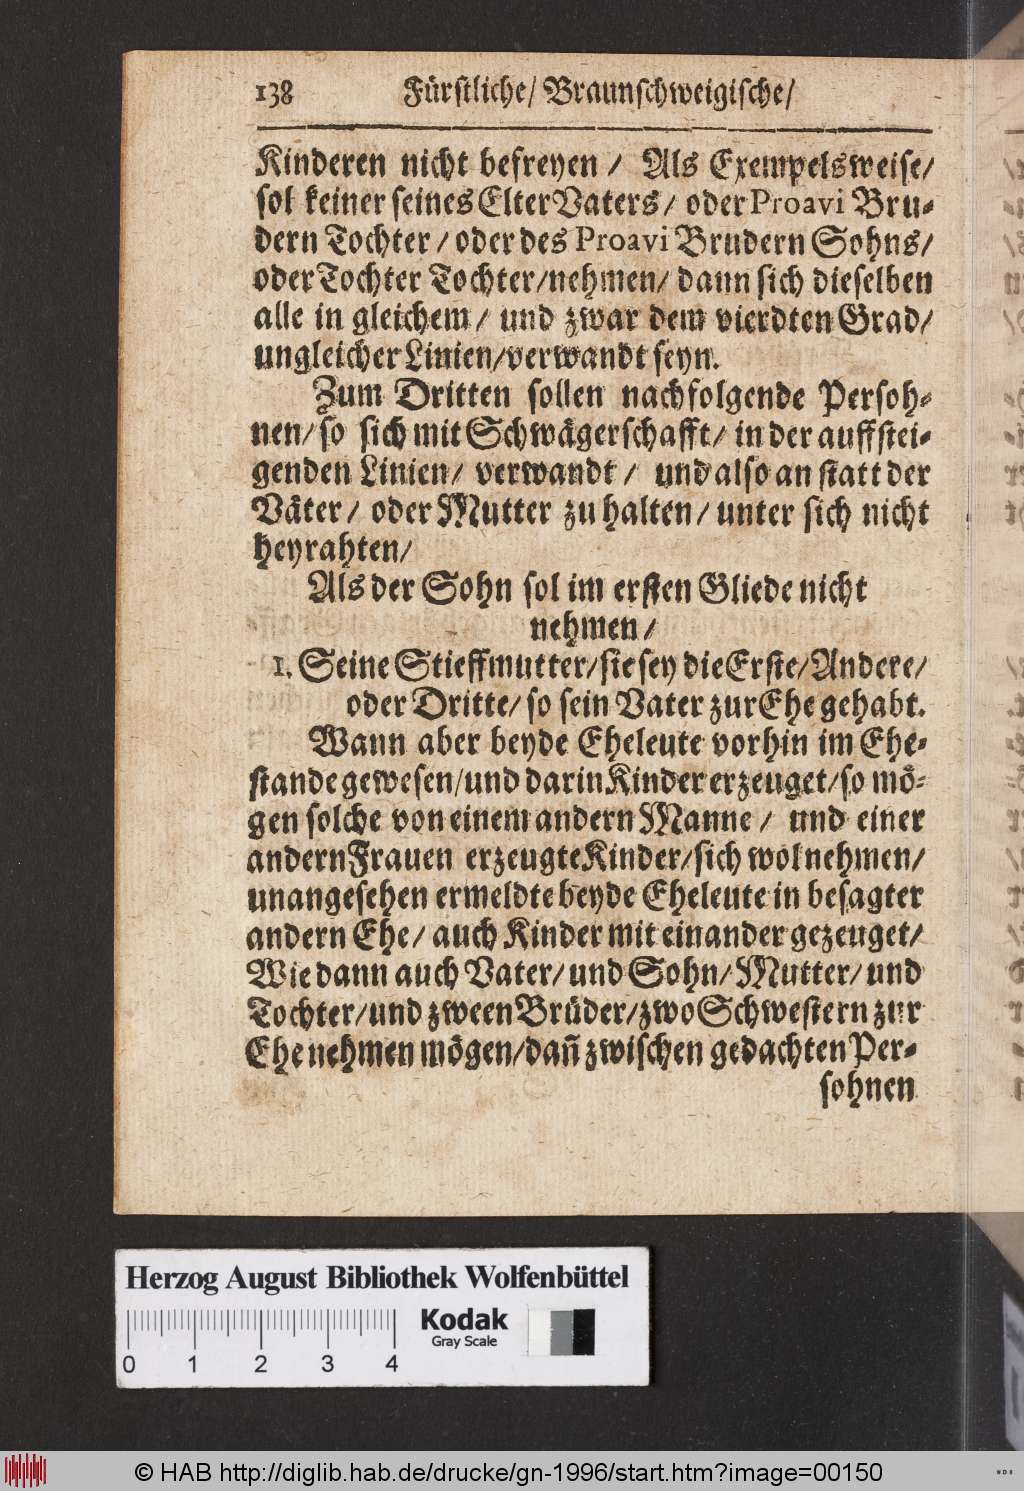 138 Fürstliche/ Braunschweigische/
Kinderen nicht befreyen / Als Exempelsweise/
sol keiner seines ElterVaters/ oder Proavi Bru-
dern Tochter / oder des Proavi Brudern Sohns/
oder Tochter Tochter/nehmen/ dann sich dieselben
alle in gleichem/ und zwar dem vierdten Grad/
ungleicher Linien/verwandt seyn.
Zum Dritten sollen nachfolgende Persoh-
nen/ so sich mit Schwägerschafft/ in der auffstei-
genden Linien/ verwandt / und also an statt der
Väter/ oder Mutter zu halten/ unter sich nicht
heyrahten/
Als der Sohn sol im ersten Gliede nicht
nehmen /
1. Seine Stieffmutter/sie sey die Erste/Andere/
oder Dritte/ so sein Vater zur Ehe gehabt.
Wann aber beyde Eheleute vorhin im Ehe-
stande gewesen/und darin Kinder erzeuget/so mö-
gen solche von einem andern Manne / und einer
andern Frauen erzeugte Kinder/sich wol nehmen/
unangesehen ermeldte beyde Eheleute in besagter
andern Ehe/ auch Kinder mit einander gezeuget/
Wie dann auch Vater/ und Sohn/ Mutter/ und
Tochter/und zween Brüder/zwo Schwestern zur
Ehe nehmen mögen/dañ zwischen gedachten Per-
sohnen
Herzog August Bibliothek Wolfenbüttel
Kodak
Gray Scale
0 1 2 3 4
© HAB http://diglib.hab.de/drucke/gn-1996/start.htm?image=00150